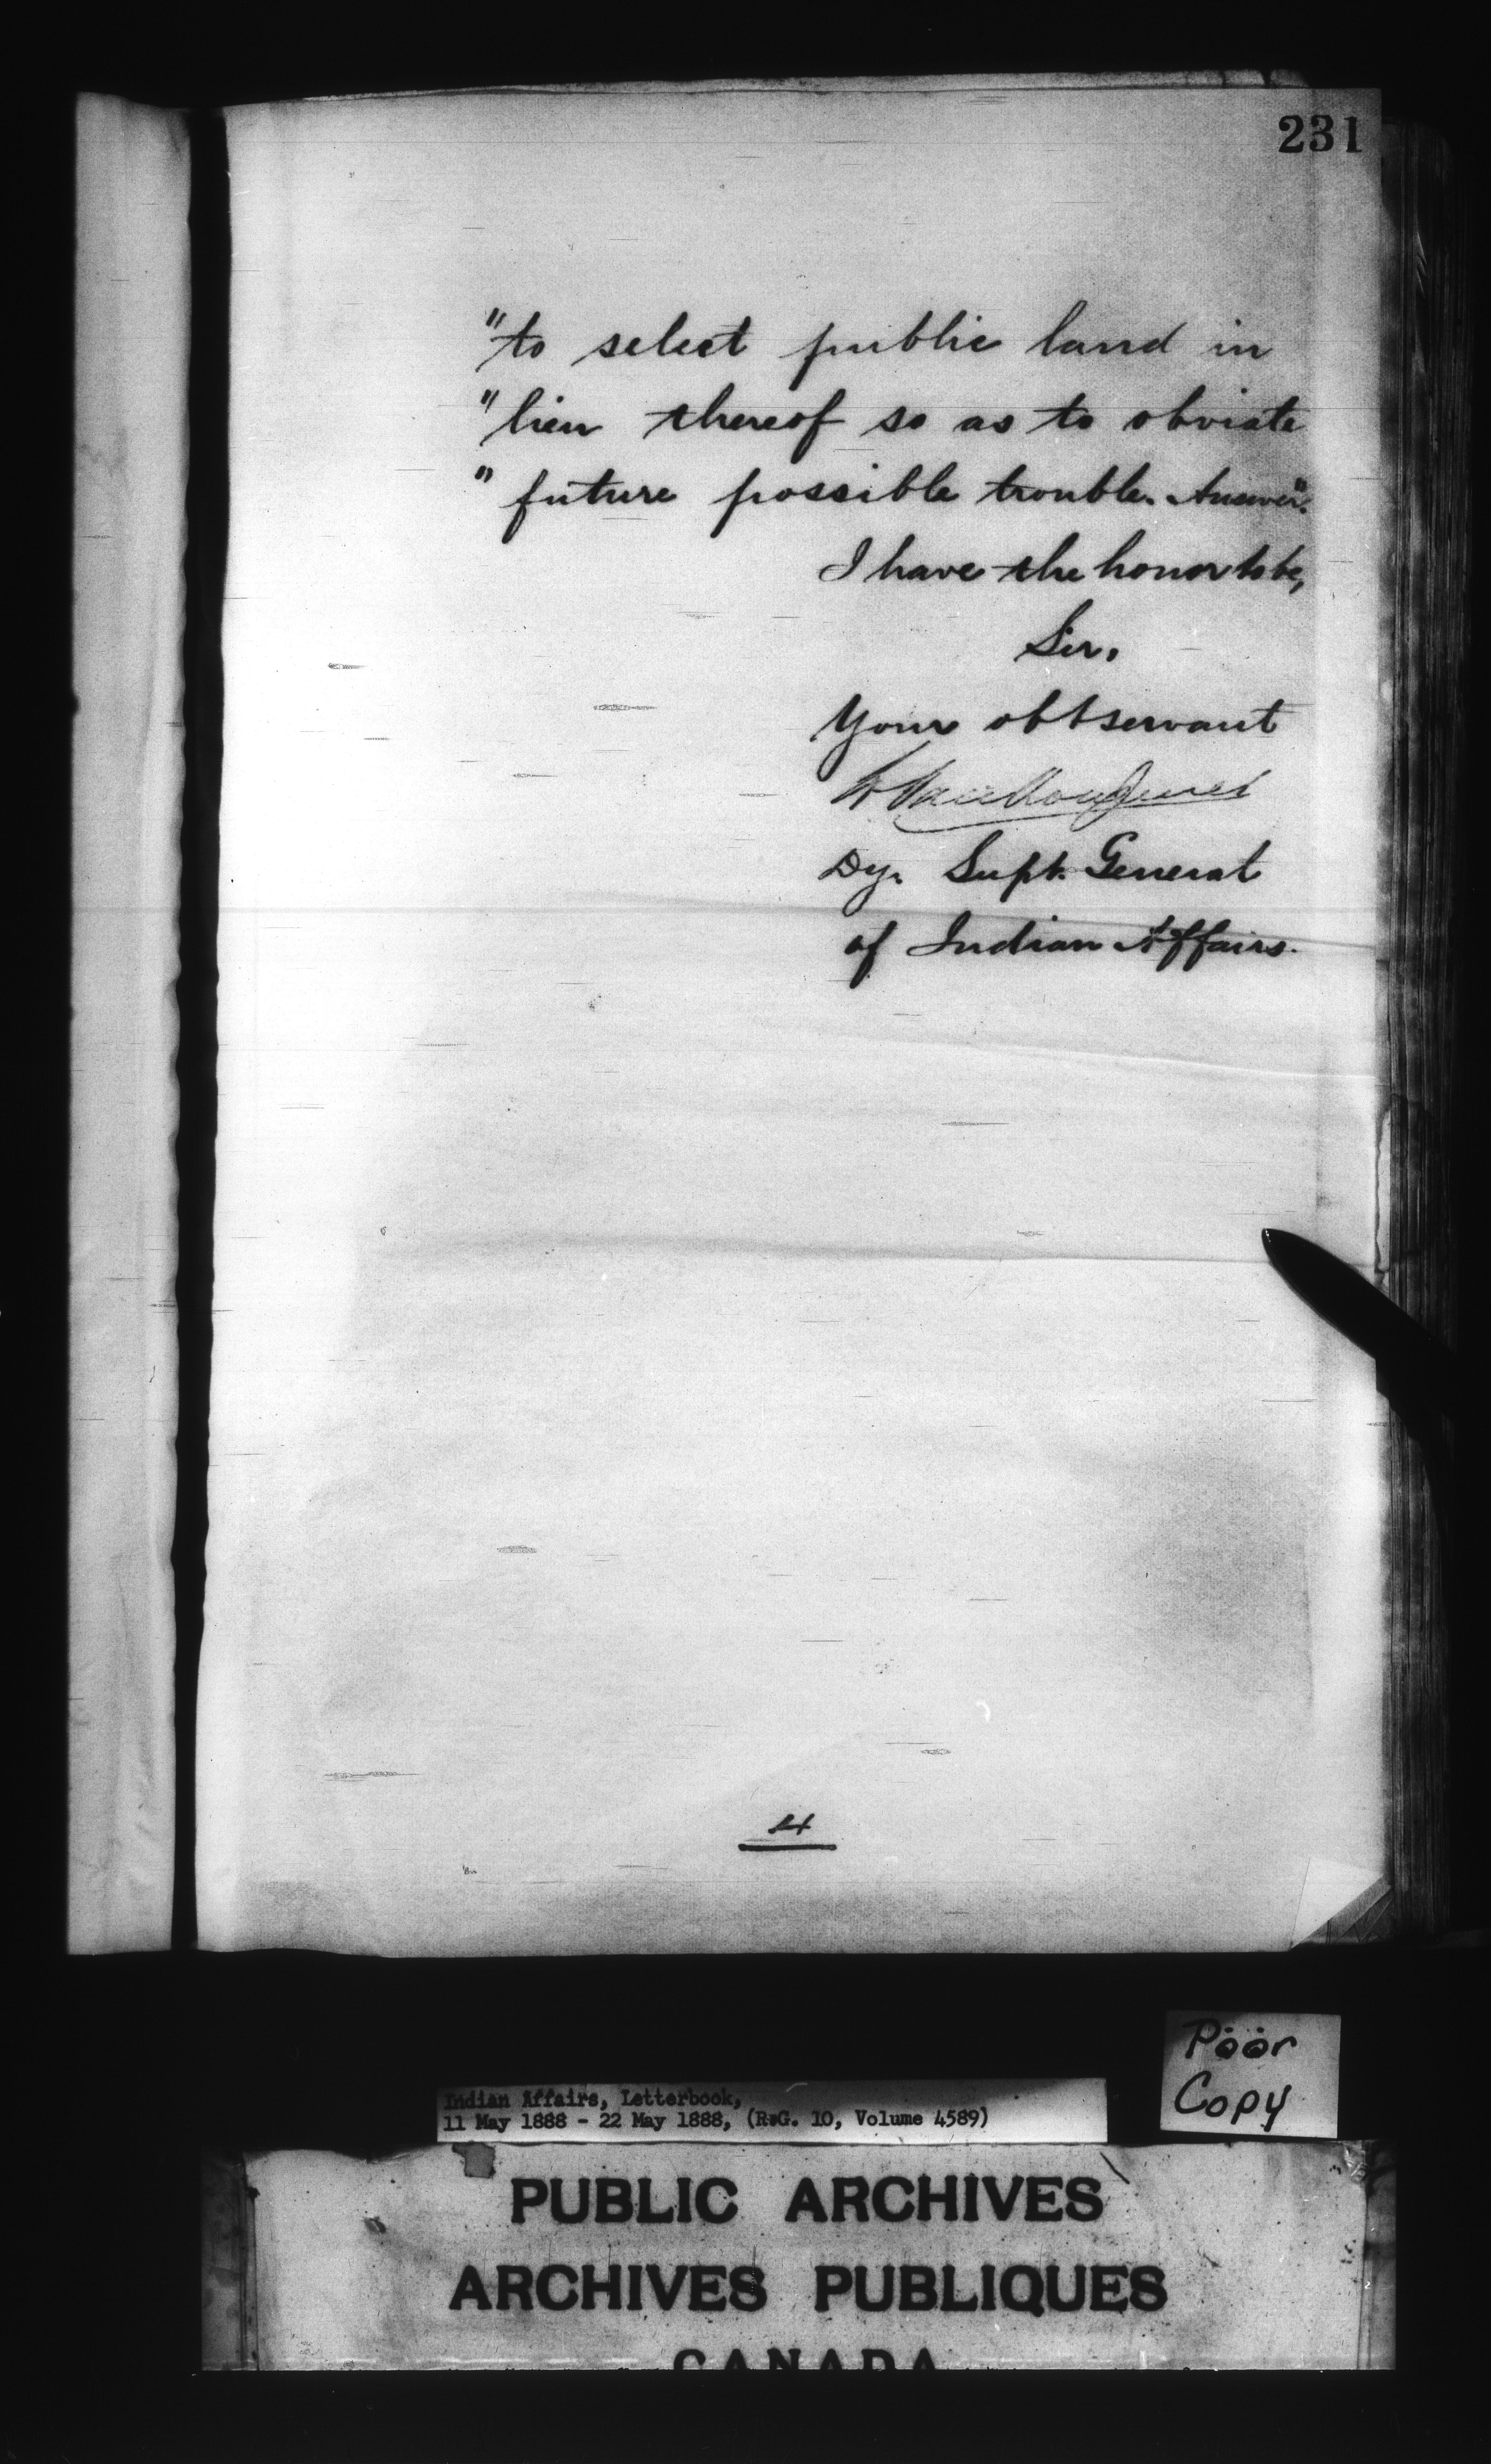 231
"to select public land in
"lieu thereof so as to obviate
"future possible trouble. Answer".
I have the honor to be,
Sir,
Your obt servant
L VanKoughnet
Dy. Supt. General
of Indian Affairs.
4
Poor
Copy
Indian Affairs, Letterbook,
11 May 1888 - 22 May 1888, (R.G. 10, Volume 4589)
PUBLIC ARCHIVES
ARCHIVES PUBLIQUES
CANADA